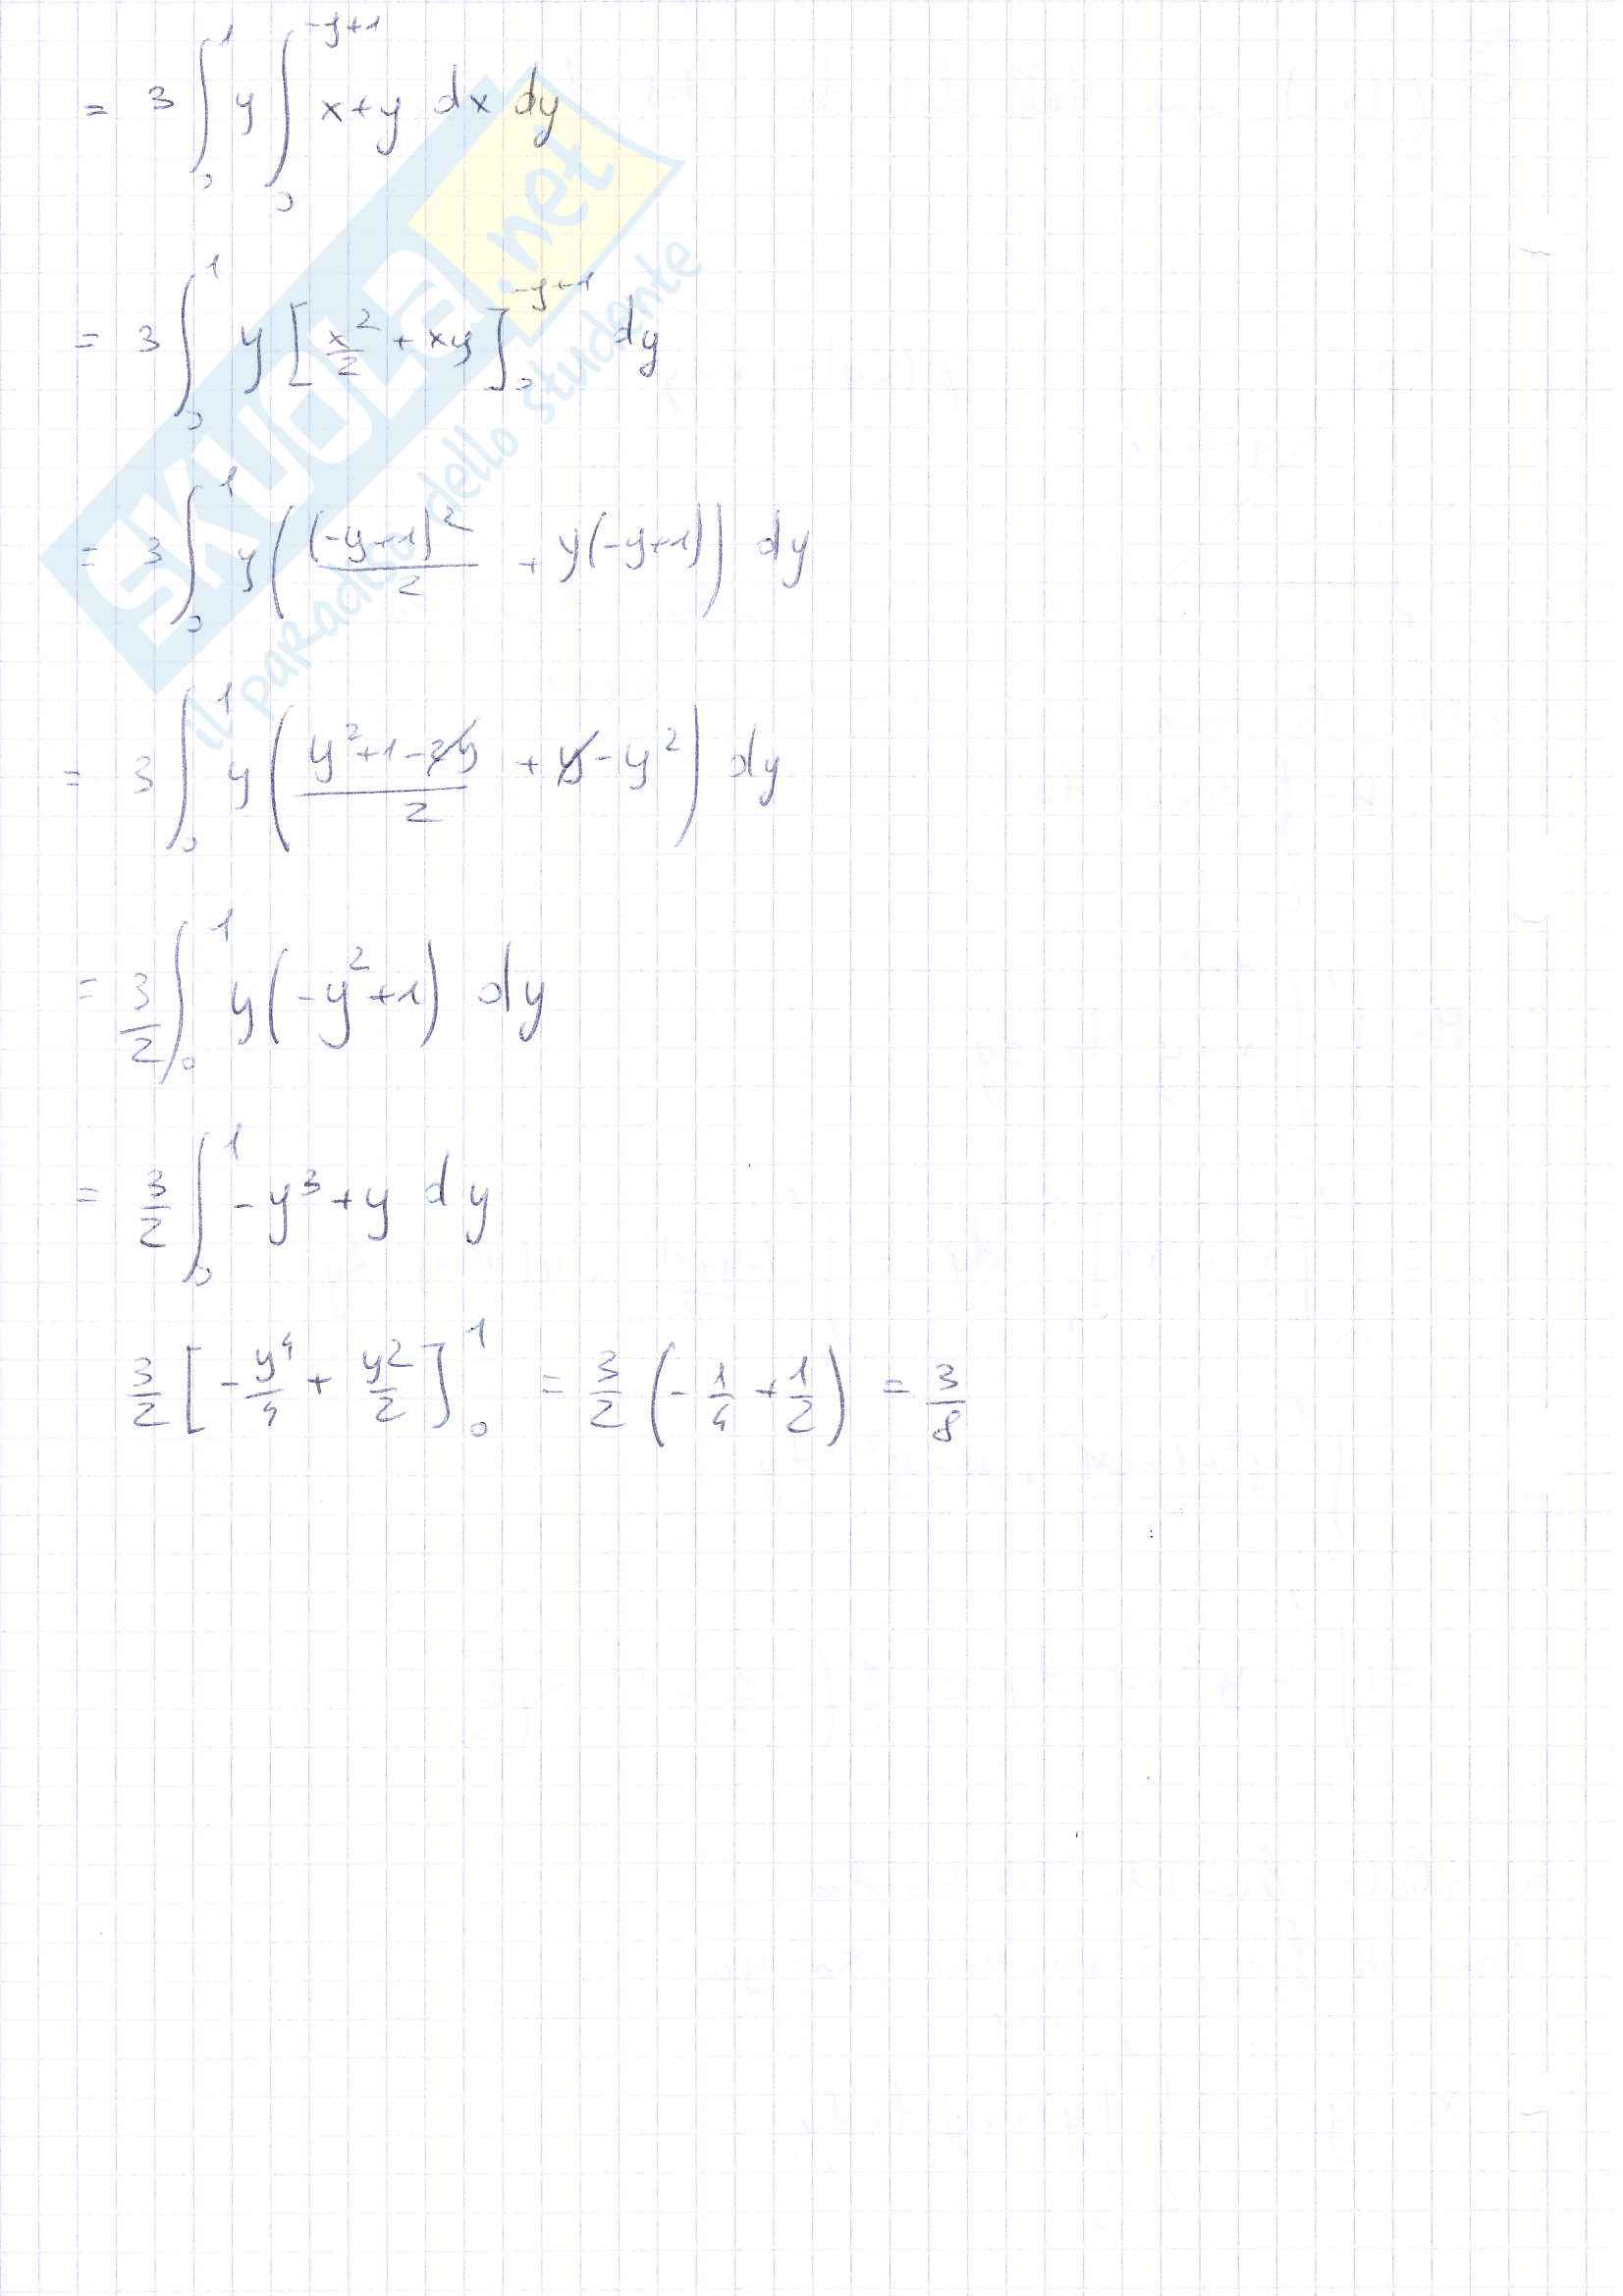 = 3 ∫₀¹ y ∫₀^{-y+1} x+y dx dy
= 3 ∫₀¹ y [x²/2 + xy]₀^{-y+1} dy
= 3 ∫₀¹ y ((-y+1)²/2 + y(-y+1)) dy
= 3 ∫₀¹ y ((y²+1-2y)/2 + y - y²) dy
= 3/2 ∫₀¹ y(-y²+1) dy
= 3/2 ∫₀¹ -y³+y dy
3/2 [-y⁴/4 + y²/2]₀¹ = 3/2 (-1/4 + 1/2) = 3/8
SKUOLa.net
il paradiso dello studente